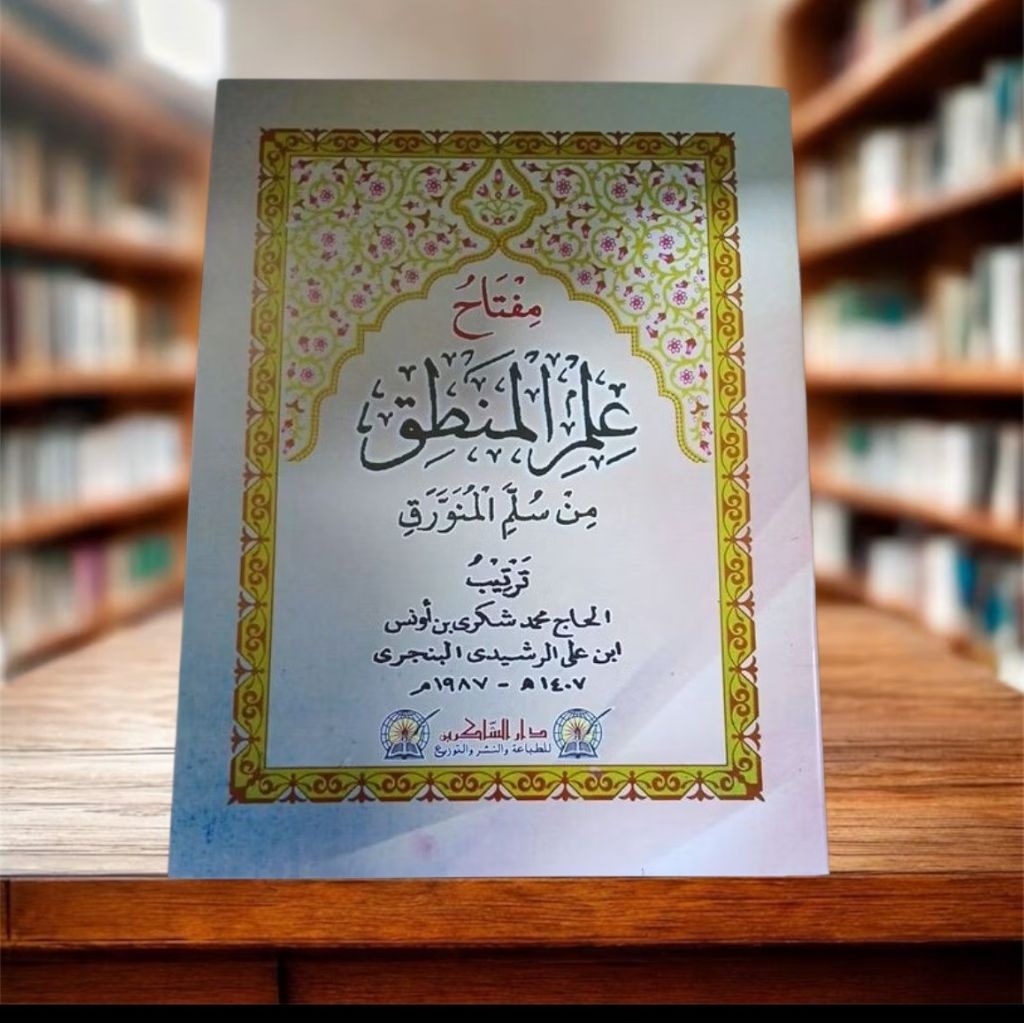 مِفْتَاحُ
عِلْمِ الْمَنْطِقِ
مِنْ سُلَّمِ الْمُنَوْرَقِ
تَرْتِيْبُ
الحاج محمد شكرى بن أونس
ابن على الرشيدى البنجرى
١٤٠٧ ﻫ - ١٩٨٧ م
دار الشاكرين
للطباعة والنشر والتوزيع